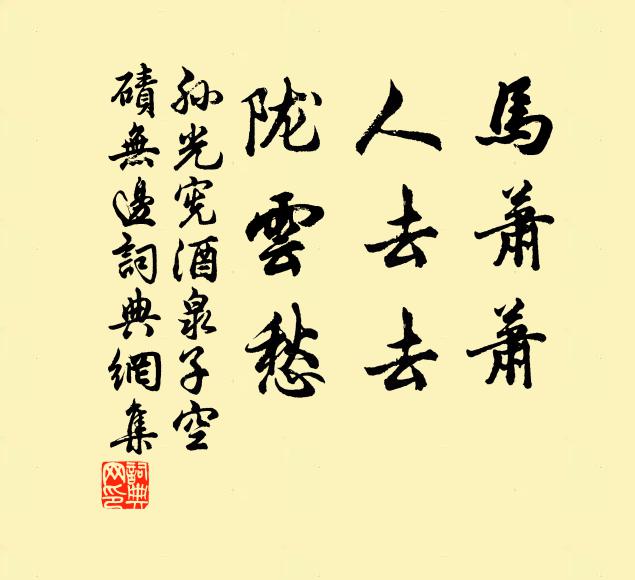 馬蕭蕭
人去去
陇雲愁
孙光宪酒泉子空
磧無邊詞典網集
詞典网印